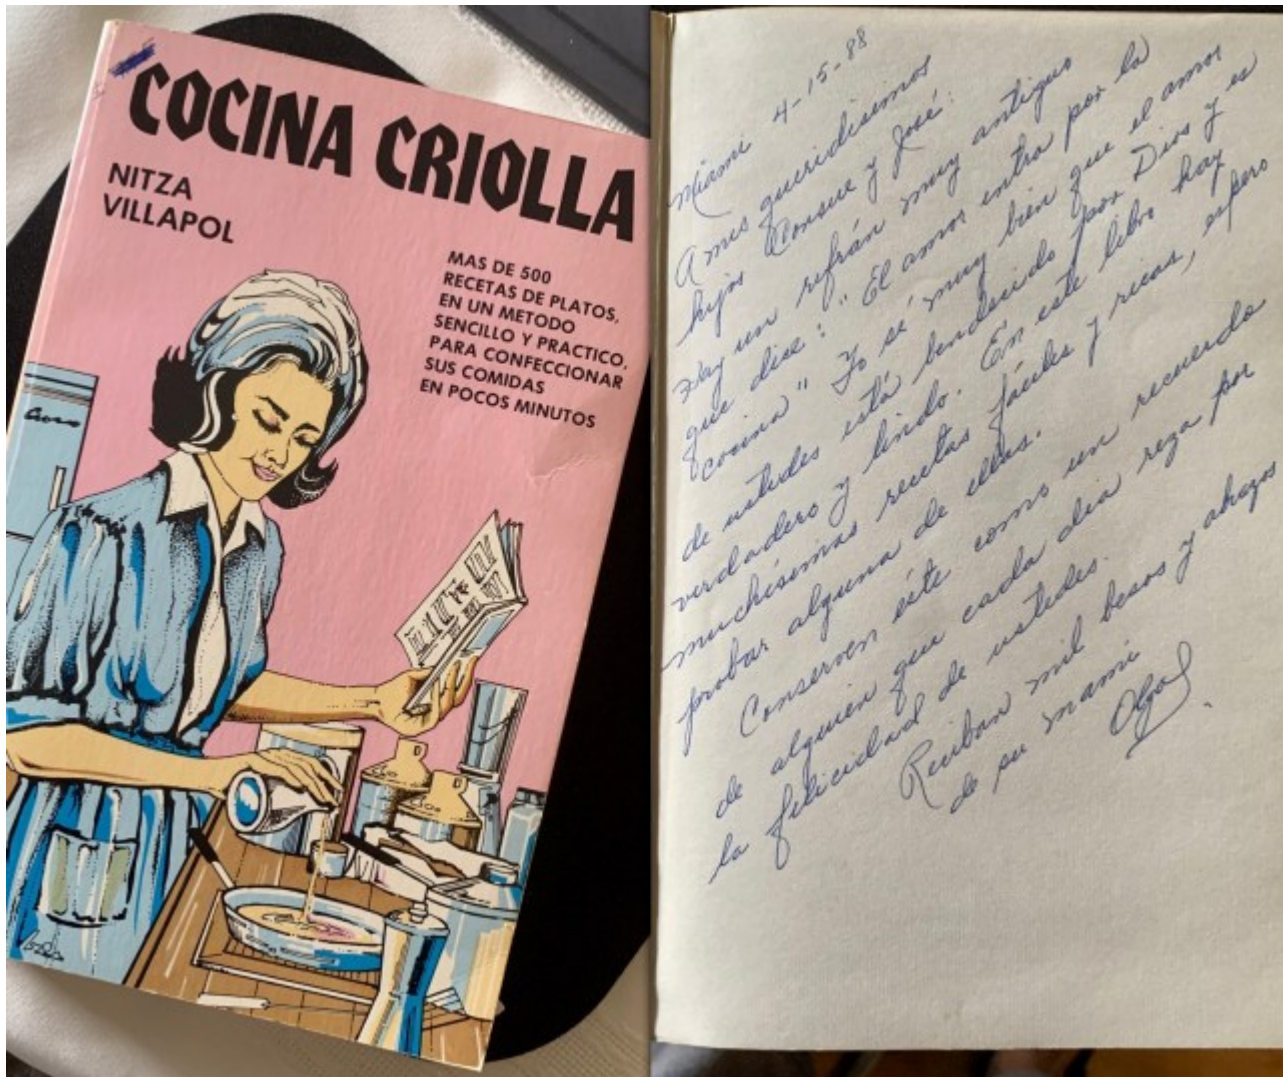 COCINA CRIOLLA
NITZA
VILLAPOL
MAS DE 500
RECETAS DE PLATOS,
EN UN METODO
SENCILLO Y PRACTICO,
PARA CONFECCIONAR
SUS COMIDAS
EN POCOS MINUTOS
Miami 4-15-88
A mis queridisimos
hijos Consue y José:
Hay un refrán muy antiguo
que dice: "El amor entra por la
cocina" Yo sé muy bien que el amor
de ustedes está bendecido por Dios y es
verdadero y lindo. En este libro hay
muchísimas recetas fáciles y ricas, espero
probar alguna de ellas.
Conserven éste como un recuerdo
de alguien que cada dia reza por
la felicidad de ustedes.
Reciban mil besos y abrazos
de su mami
Olga